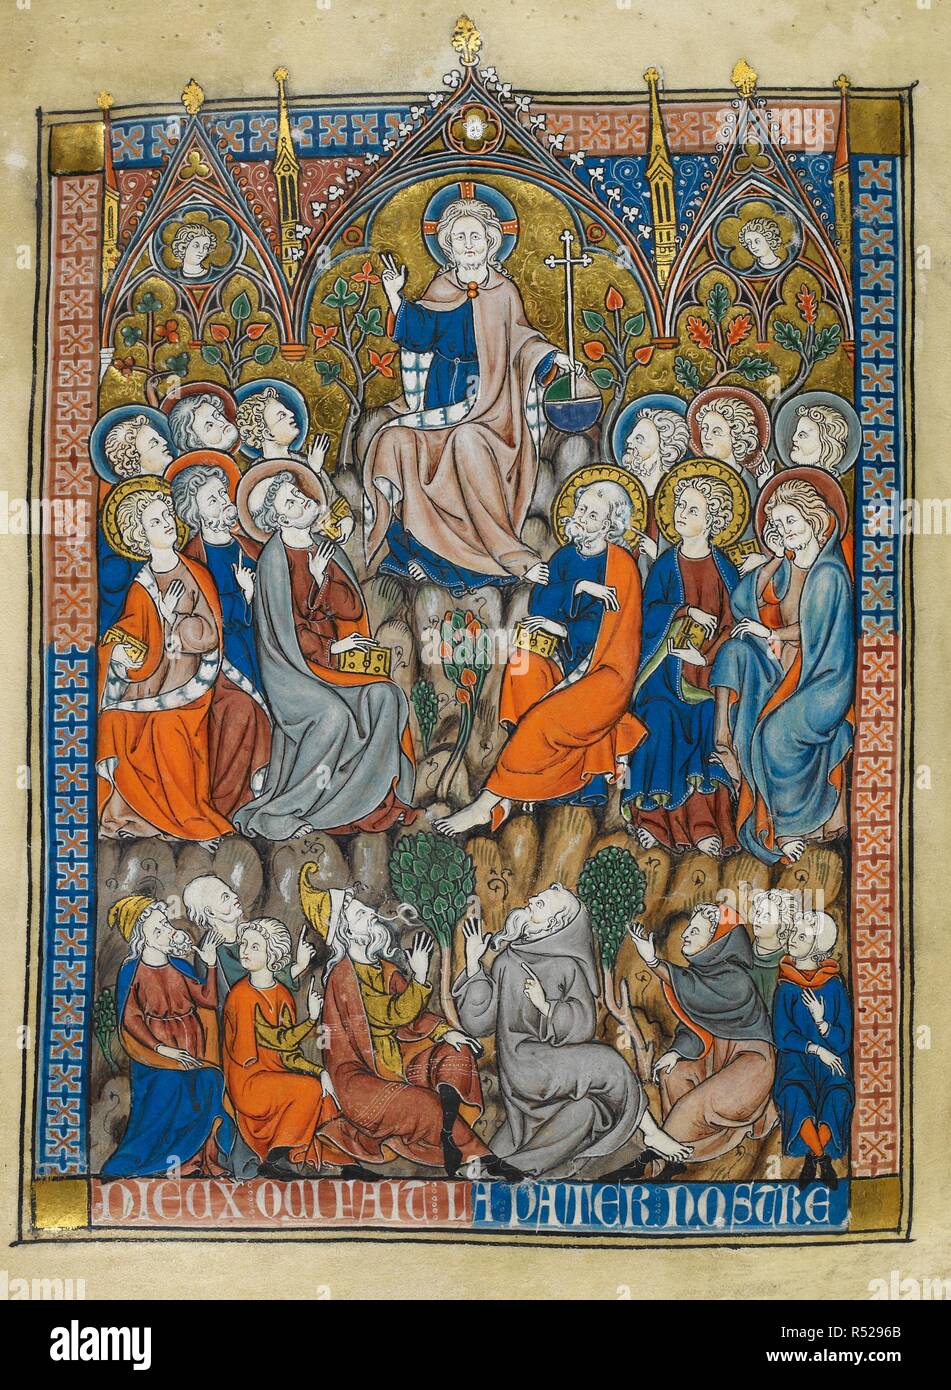 DIEUX QUI FAIT LA PATER NOSTRE
alamy
Image ID: R5296B
www.alamy.com